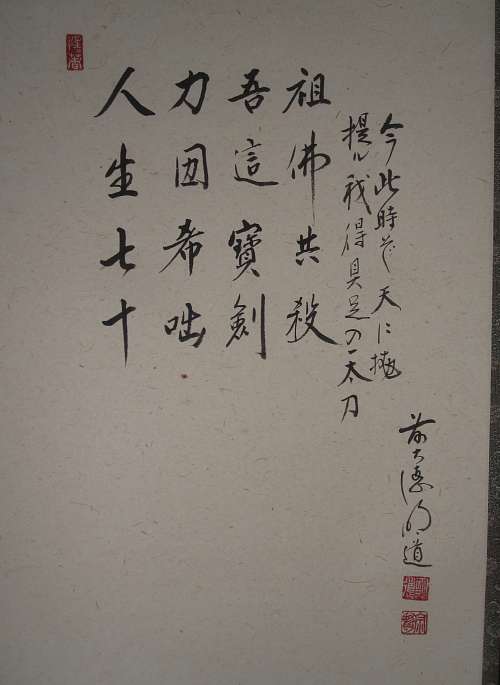 人生七十
力㘞希咄
吾這寶劍
祖佛共殺
提ル我得具足の一太刀
今此時ぞ天に抛
前大徳明道